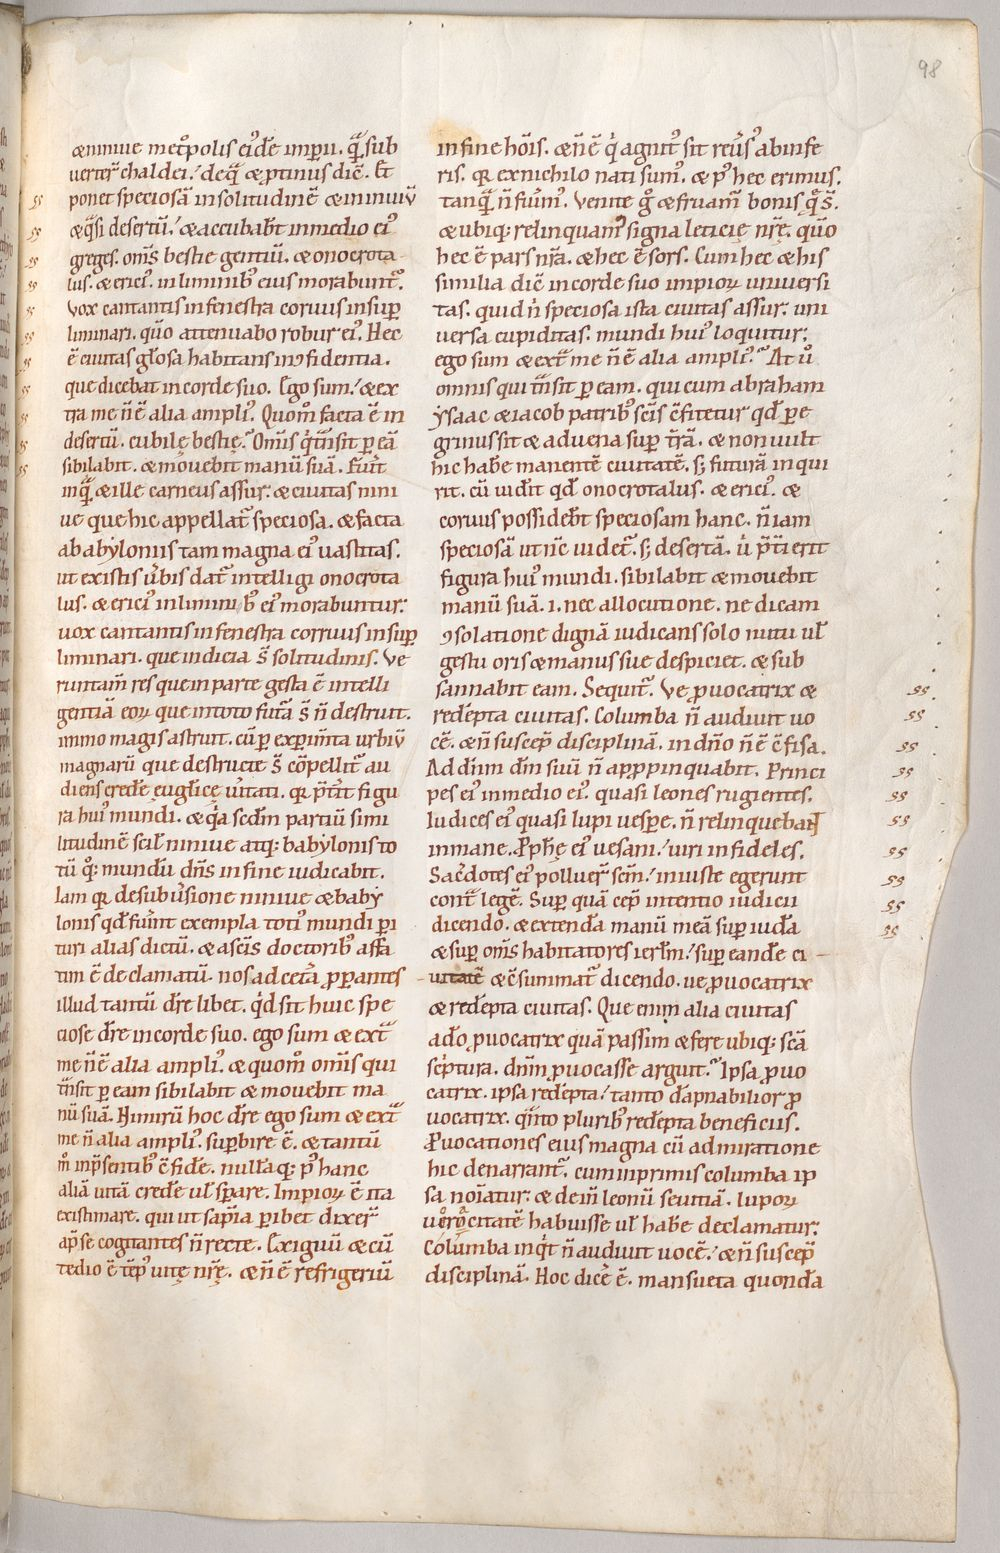 98
& ninive met̊polis eiꝰdē impii. q̄ sub
vertēr̄ chaldei. deq̄ & ꝓtinus diē. Et
ponet speciosā in solitudinē & in inviū
& q̄si desertū. & accubabt̄ in medio eiꝰ
greges. om̄s bestie gentiū. & onocrota
lus. & ericiꝰ. in liminibꝰ eius morabuntꝰ.
Vox cantantis in fenestra corvus in suꝑ
liminari. qūo attenuabo robur eiꝰ. Hec
ē civitas gl̄osa habitans in ꝯfidentia.
que dicebat in corde suo. Ego sum. & ex
tra me n̄ ē alia ampliꝰ. Quom̊ facta ē in
desertū. cubilę bestię. Om̄is q̄ tn̄sit ꝑ eā
sibilabit. & movebit manū suā. Fuīt
inq̄ & ille carneus assur. & civitas nini
ve que hic appellat̄ speciosa. & facta
a babyloniis tam magna eiꝰ vastitas.
ut existis ūbis dat̄ intelligi onocrota
lus. & ericiꝰ in liminibꝰ eiꝰ morabuntur.
vox cantantis in fenestra corrvus in suꝑ
liminari. que indicia s̄ solitudinis. Ve
runtam̄ res que in parte gesta ē intelli
gentiā eoꝝ que in toto futa s̄ n̄ destruit.
immo magis astruit. cū ꝑ exꝑim̄ta urbiū
magnarū que destructe s̄ cōpellit̄ au
diens cred̄e ęuglicę ūitati. qꝛ p̄t̄it figu
ra huiꝰ mundi. & q̇a sedm̄ partiū simi
litudinē scil̄ ninive atq; babylonis to
tū q̊; mundū dn̄s in fine iudicabit.
Iam qꝛ de subūsione ninive & baby
lonis qd̄ fuīnt exempla totiꝰ mundi ꝑi
turi alias dictū. & a sc̄is doctoribꝰ affa
tim ē declamatū. nos ad cet̄a ꝓꝑantes
illud tantū dr̄e libet. q̇d sit huic spe
ciose dr̄e in corde suo. ego sum & ext̄
me n̄ ē alia ampliꝰ. & quom̊ om̄is qui
tn̄sit ꝑ eam sibilabit & movebit ma
nū suā. Nimirū hoc dr̄e ego sum & ext̄
me n̄ alia ampliꝰ. suꝑbire ē. & tantū
m̊ in p̄sentibꝰ ꝯfid̄e. nullāq; pꝰ hanc
aliā vitā cred̄e ul̄ sꝑare. Impioꝝ ē ita
existimare. qui ut sapīa ꝑibet dixer̄
ap̄ se cogitantes n̄ recte. Exiguū & cū
tedio ē tēpꝰ vitę nr̄ę. & n̄ ē refrigeriū
in fine hōis. & n̄ ē q̇ agnitꝰ sit reūsꝰ ab infe
ris. qꝛ ex nichilo nati sumꝰ. & pꝰ hec erimus.
tanq̄ n̄ fuīmꝰ. Venite g̊ & fruam̄ bonis q̄ s̄.
& ubiq; relinquamꝰ signa leticię nr̄ę. qūo
hec ē pars nr̄a. & hec ē sors. Cum hec & his
similia diē in corde suo impioꝝ universi
tas. quid n̄ speciosa ista civitas assur. uni
versa cupiditas. mundi huiꝰ loquitur;
ego sum & ext̄ me n̄ ē alia ampliꝰ. At ū̊
omnis qui tn̄sit ꝑ eam. qui cum abraham
Ysaac & iacob patribꝰ sc̄is ꝯfitetur qd̄ ꝑe
grinus sit & advena suꝑ t̄rā. & non vult
hic hab̄e manentē civitatē. s; futurā inqui
rit. cū vid̄it qd̄ onocrotalus. & ericiꝰ. &
corvus possidebt̄ speciosam hanc. n̄ iam
speciosā ut nc̄ videt̄. s; desertā. ū p̄t̄ierit
figura huiꝰ mundi. sibilabit & movebit
manū suā. i. nec allocutione. ne dicam
ꝯsolatione dignā iudicans solo nutu ul̄
gestu oris & manus sue despiciet. & sub
sannabit eam. Sequit̄. Ve ꝓvocatrix &
red̄epta civitas. Columba n̄ audivit vo
cē. & n̄ suscep̄ disciplinā. in dn̄o n̄ ē ꝯfisa.
Ad dn̄m dm̄ suū n̄ apꝓpinquabit. Princi
pes eiꝰ in medio eiꝰ. quasi leones rugientes.
Iudices eiꝰ quasi lupi vesꝑe. n̄ relinquebant
in mane. Ꝓph̄ę eiꝰ vesani. viri infideles.
Sac̄dotes eiꝰ polluer̄ scm̄. iniuste egerunt
cont̄ legē. Suꝑ quā cep̄ intentio iudicii
dicendo. & extend̄a manū meā suꝑ iud̄a
& suꝑ om̄s habitatores ierl̄m. suꝑ eand̄e ci
vitatē & ꝯsummat̄ dicendo. ve ꝓvocatrix
& red̄epta civitas. Que enim alia civitas
adō ꝓvocatrix quā passim & fere ubiq; scā
sc̄ptura. dn̄m ꝓvocasse arguit. Ipsa ꝓvo
catrix. ipsa red̄epta. tanto d̄apnabilior ꝓ
vocatrix. q̇nto pluribꝰ red̄epta beneficiis.
Ꝓvocationes eius magna cū admiratione
hic denarrant̄. cum inprimis columba ip
sa noīatur. & dem̄ leonū sevitiā. lupoꝝ
v̊ ꝟocitatē habuisse ul̄ hab̄e declamatur.
Columba inq̇t n̄ audivit vocē. & n̄ suscep̄
disciplinā. Hoc dic̄e ē. mansueta quond̄a